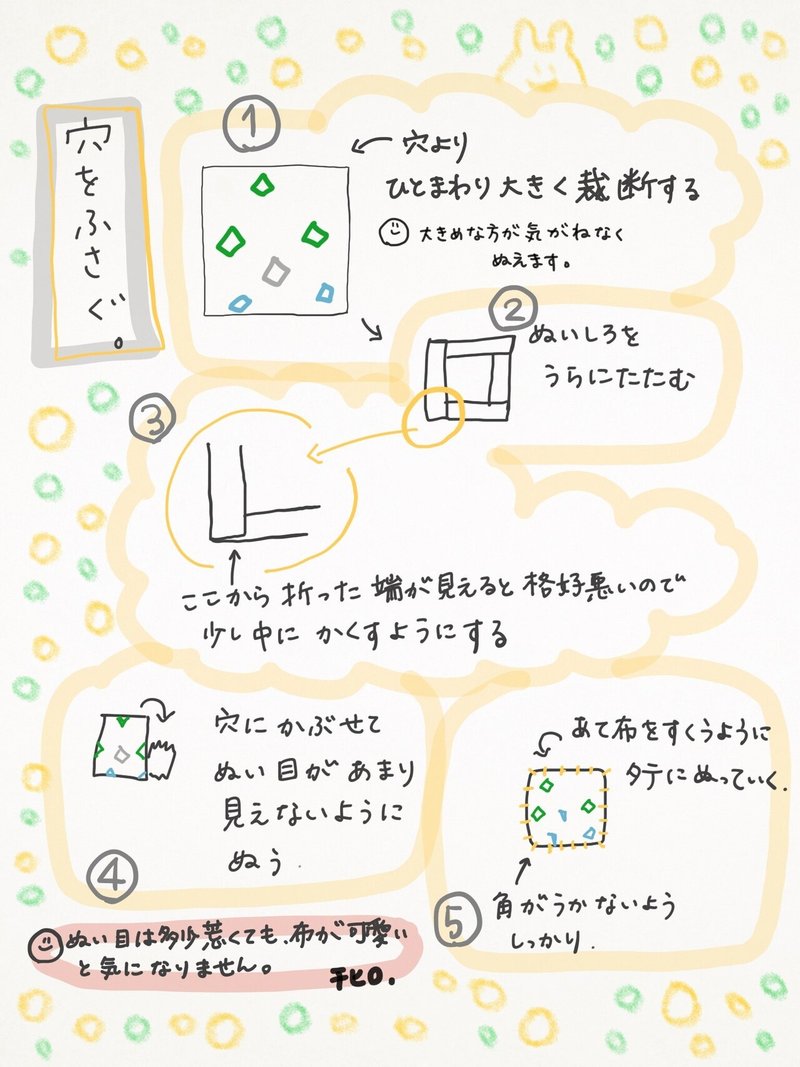 穴をふさぐ。
①
穴より
ひとまわり大きく裁断する
大きめな方が気がねなく
ぬえます。
②
ぬいしろを
うらにたたむ
③
ここから折った端が見えると格好悪いので
少し中にかくすようにする
④
穴にかぶせて
ぬい目があまり
見えないように
ぬう.
⑤
あて布をすくうように
タテにぬっていく.
角がうかないよう
しっかり.
ぬい目は多少悪くても、布が可愛い
と気になりません。